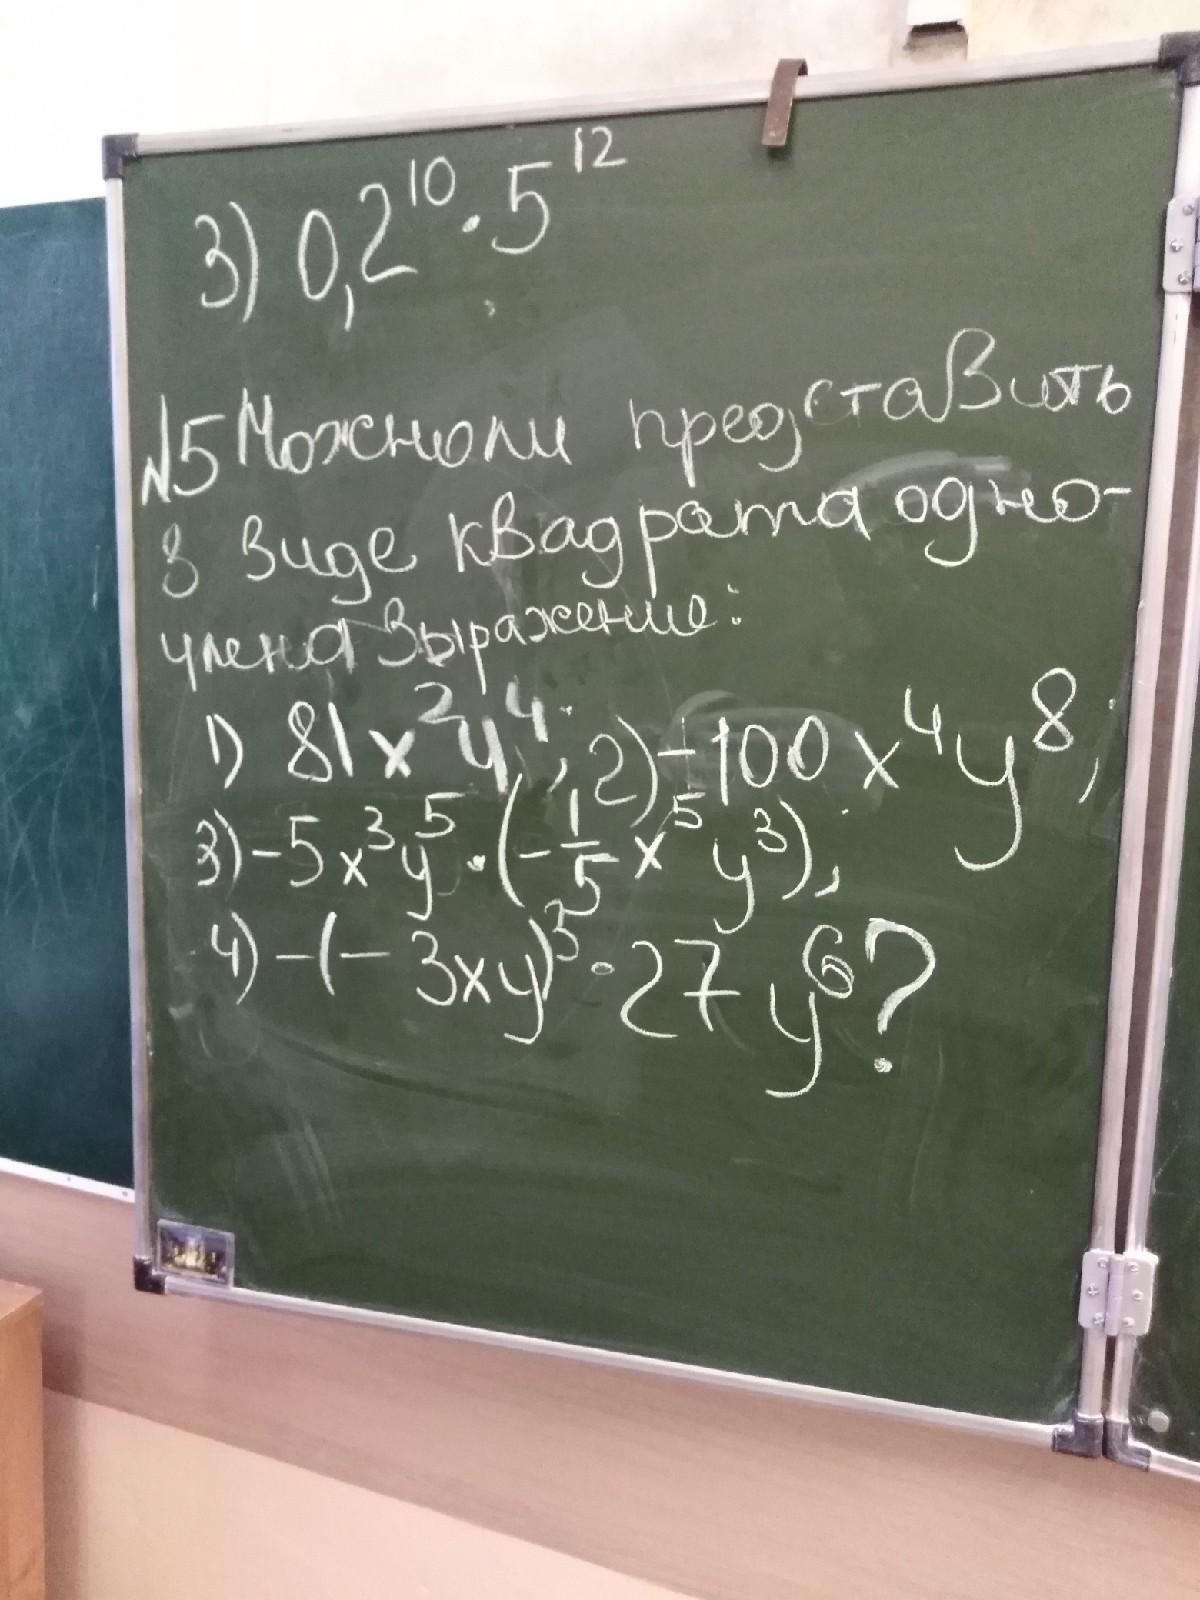 3) 0,2¹⁰ · 5¹²
№5 Можно ли представить
в виде квадрата одно-
члена выражение:
1) 81x²y⁴; 2) -100x⁴y⁸,
3) -5x³y⁵ · (-1/5 x⁵y³),
4) -(-3xy)³ · 27y⁶?